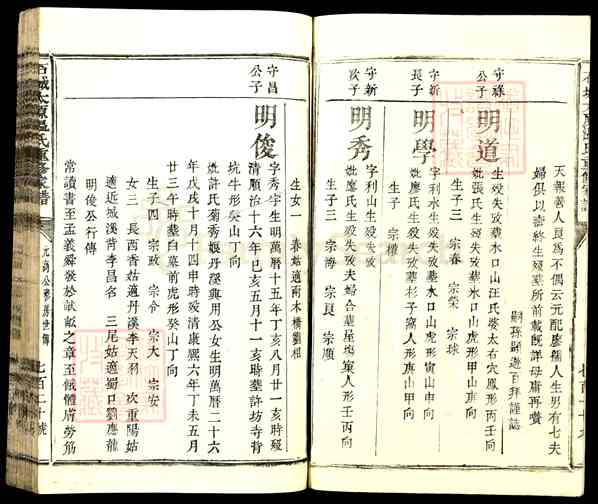 天報善人良為不偶云元配廖孺人生男有七夫
婦俱以壽終生歿墓所前載既詳毋庸再贅
嗣孫顯遊百拜謹誌
守祿公子
明道
生歿失攷墓水口山汪氏婆太右穴鳳形丙壬向
妣張氏生歿失攷墓水口山虎形甲山庚向
生子三 宗春 宗榮 宗球
守新長子
明學
字利水生歿失攷墓水口山虎形寅山申向
妣廖氏生歿失攷墓杉子窩人形庚山甲向
生子 宗權
守新次子
明秀
字利山生歿失攷
妣廖氏生歿失攷夫婦合墓屋塲窠人形壬丙向
生子三 宗海 宗良 宗順
生女一 春姑適南木橋劉桓
守昌公子
明俊
字秀宇生明萬曆十五年丁亥八月廿一亥時歿
清順治十六年己亥五月十一亥時墓許坊寺背
坑牛形癸山丁向
妣許氏菊秀娘丹溪興用公女生明萬曆二十六
年戊戌十月十四申時歿清康熙六年丁未五月
廿三午時墓白墓前虎形癸山丁向
生子四 宗政 宗令 宗大 宗安
女三 長酉香姑適丹溪李天羽 次重陽姑
適近城溪背李昌名 三尾姑適蜀口劉應龍
明俊公行傳
常讀書至孟義舜發於畎畝之章至餓體膚勞筋
石城太原溫氏重修家譜
七百二十號